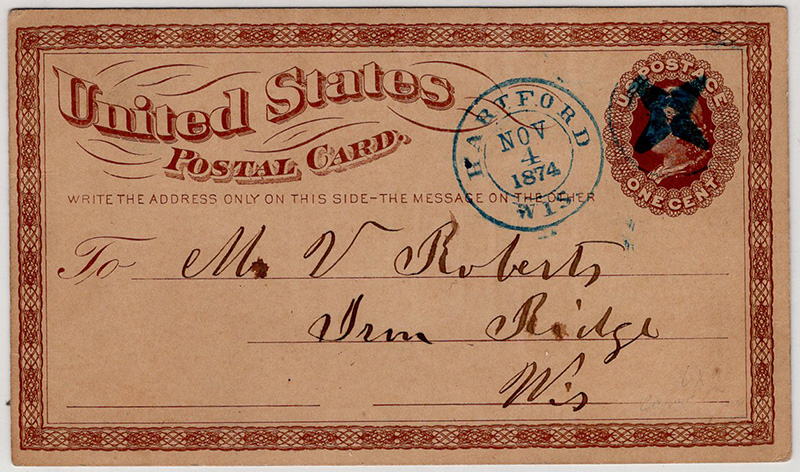 United States
POSTAL CARD.
WRITE THE ADDRESS ONLY ON THIS SIDE-THE MESSAGE ON THE OTHER
HARTFORD
NOV
4
1874
WIS
U.S. POSTAGE
ONE CENT
To Mr. V Roberts
Iron Ridge
Wis